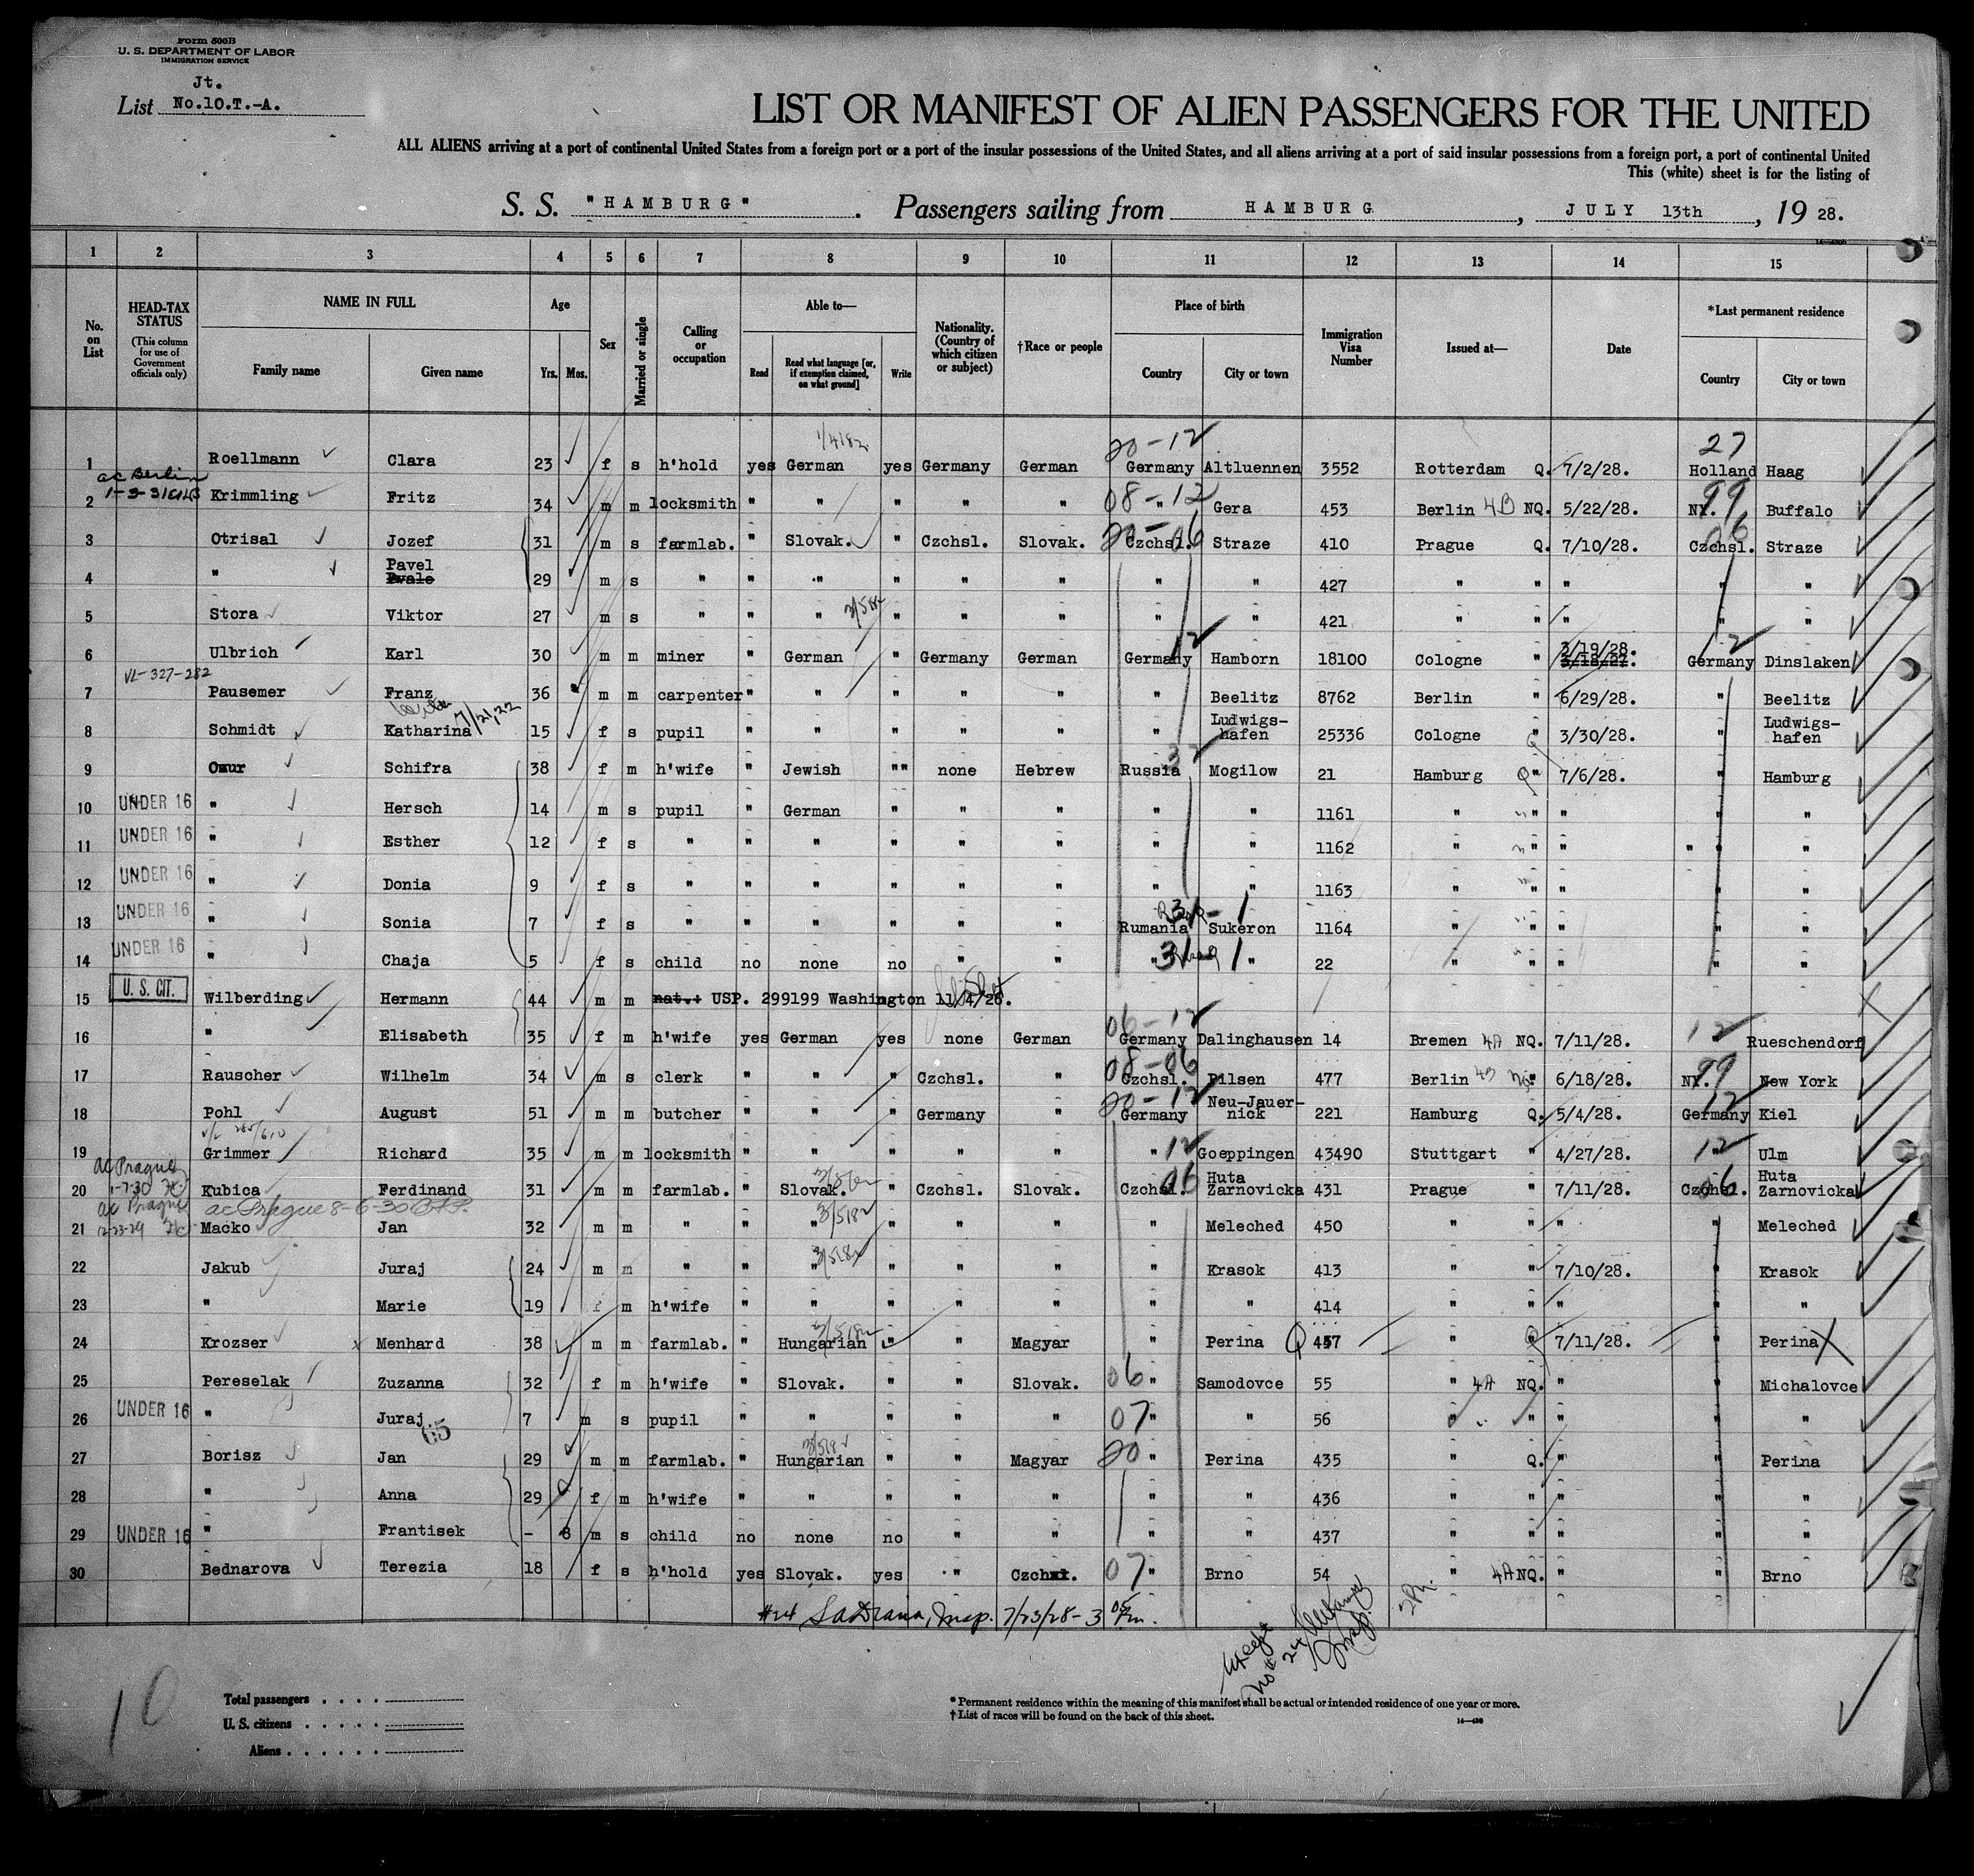 Form 500B
U. S. DEPARTMENT OF LABOR
IMMIGRATION SERVICE
Jt.
List No.10.T.-A.
LIST OR MANIFEST OF ALIEN PASSENGERS FOR THE UNITED
ALL ALIENS arriving at a port of continental United States from a foreign port or a port of the insular possessions of the United States, and all aliens arriving at a port of said insular possessions from a foreign port, a port of continental United
This (white) sheet is for the listing of
S. S. "HAMBURG". Passengers sailing from HAMBURG, JULY 13th, 1928.
1 2 3 4 5 6 7 8 9 10 11 12 13 14 15
No. on List
HEAD-TAX STATUS (This column for use of Government officials only)
NAME IN FULL Family name Given name
Age Yrs. Mos.
Sex
Married or single
Calling or occupation
Able to— Read Read what language [or, if exemption claimed, on what ground] Write
Nationality. (Country of which citizen or subject)
†Race or people
Place of birth Country City or town
Immigration Visa Number
Issued at—
Date
*Last permanent residence Country City or town
20-12 27
1 Roellmann Clara 23 f s h'hold yes German yes Germany German Germany Altluennen 3552 Rotterdam Q. 7/2/28. Holland Haag
ac Berlin
08-12 99
2 Krimmling Fritz 34 m m locksmith " " " " " " Gera 453 Berlin 4B NQ. 5/22/28. NY. Buffalo
20-06 06
3 Otrisal Jozef 31 m s farmlab. " Slovak. " Czchsl. Slovak. Czchsl. Straze 410 Prague Q. 7/10/28. Czchsl. Straze
4 " Pavel 29 m s " " " " " " " " 427 " " " " "
5 Stora Viktor 27 m s " " " " " " " " 421 " " " " "
12 3/19/28. 12
6 Ulbrich Karl 30 m m miner " German " Germany German Germany Hamborn 18100 Cologne " Germany Dinslaken
VL-327-282
7 Pausemer Franz 36 m m carpenter " " " " " " Beelitz 8762 Berlin " 6/29/28. " Beelitz
7/21,22
8 Schmidt Katharina 15 f s pupil " " " " " " Ludwigs-hafen 25336 Cologne " 3/30/28. " Ludwigs-hafen
9 Ozur Schifra 38 f m h'wife " Jewish "" none Hebrew Russia Mogilow 21 Hamburg Q" 7/6/28. " Hamburg
10 UNDER 16 " Hersch 14 m s pupil " German " " " " " 1161 " " " " "
11 UNDER 16 " Esther 12 f s " " " " " " " " 1162 " " " " " "
12 UNDER 16 " Donia 9 f s " " " " " " " " 1163 " " " " "
13 UNDER 16 " Sonia 7 f s " " " " " " Rumania Sukeron 1164 " " " " "
14 UNDER 16 " Chaja 5 f s child no none no " " " " 22 " " " " "
15 U. S. CIT. Wilberding Hermann 44 m m nat.: USP. 299199 Washington 11/4/26.
06-12 12
16 " Elisabeth 35 f m h'wife yes German yes none German Germany Dalinghausen 14 Bremen 4A NQ. 7/11/28. " Rueschendorf
08-06 99
17 Rauscher Wilhelm 34 m s clerk " " " Czchsl. " Czchsl. Pilsen 477 Berlin 4B " 6/18/28. NY. New York
20-12 12
18 Pohl August 51 m m butcher " " " Germany " Germany Neu-Jauer-nick 221 Hamburg Q. 5/4/28. Germany Kiel
12 12
19 Grimmer Richard 35 m m locksmith " " " " " " Goeppingen 43490 Stuttgart " 4/27/28. " Ulm
ac Prague
1-7-30
06 06
20 Kubica Ferdinand 31 m m farmlab. " Slovak. " Czchsl. Slovak. Czchsl. Huta Zarnovicka 431 Prague " 7/11/28. Czchsl. Huta Zarnovicka
ac Prague ac Prague 8-6-30
12-23-29
21 Macko Jan 32 m m " " " " " " " Meleched 450 " " " " Meleched
22 Jakub Juraj 24 m m " " " " " " " Krasok 413 " " 7/10/28. " Krasok
23 " Marie 19 f m h'wife " " " " " " " 414 " " " " "
24 Krozser Menhard 38 m m farmlab. " Hungarian " " Magyar " Perina Q 457 " Q 7/11/28. " Perina
25 Pereselak Zuzanna 32 f m h'wife " Slovak. " " Slovak. 06 " Samodovce 55 " 4A NQ. " " Michalovce
26 UNDER 16 " Juraj 7 m s pupil " " " " " 07 " " 56 " " " " "
65
27 Borisz Jan 29 m m farmlab. " Hungarian " " Magyar 20 " Perina 435 " Q. " " Perina
28 " Anna 29 f m h'wife " " " " " " " 436 " " " " "
29 UNDER 16 " Frantisek - 8 m s child no none no " " " " 437 " " " " "
30 Bednarova Terezia 18 f s h'hold yes Slovak. yes " Czchsl. 07 " Brno 54 " 4A NQ. " " Brno
#24 Insp. 7/23/28-3 Pm.
except
no 24
Insp.
10
Total passengers . . . .
U. S. citizens . . . . .
Aliens . . . . . .
* Permanent residence within the meaning of this manifest shall be actual or intended residence of one year or more.
† List of races will be found on the back of this sheet.